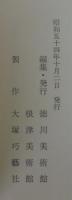 昭和五十四年十月二日 発行
編集・発行 徳川美術館
根津美術館
製作 大塚巧藝社